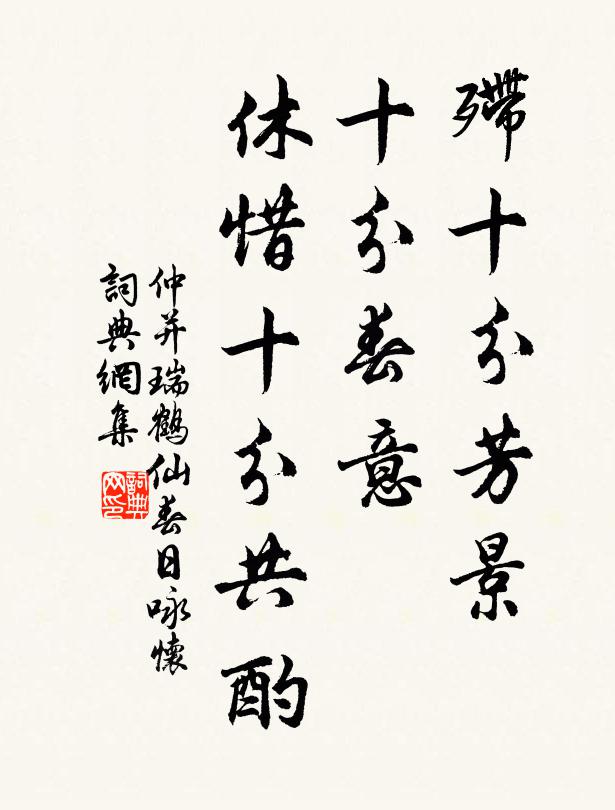 殢十分芳景
十分春意
休惜十分共酌
仲并瑞鶴仙春日咏懷
詞典網集
詞典
网印